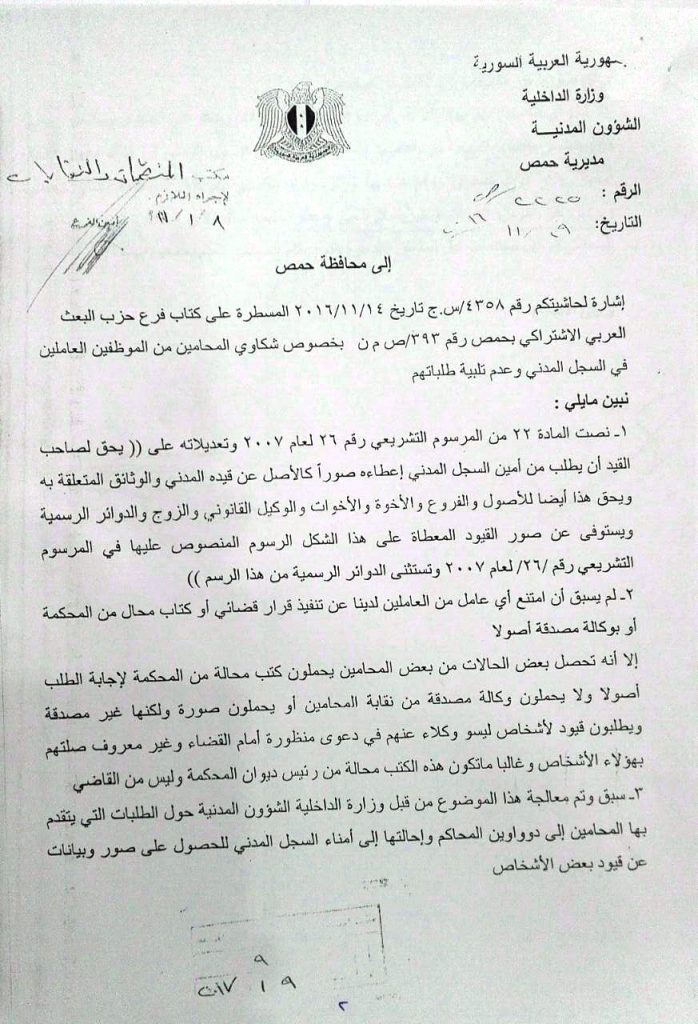 جمهورية العربية السورية
وزارة الداخلية
الشؤون المدنيـــة
مديرية حمص
الرقم : ٢٢٢٥/ص
التاريخ: ٢٩ / ١١ / ٢٠١٦
مكتب المنظمات والنقابات
لإجراء اللازم
٨ / ١ /
إلى محافظة حمص
إشارة لحاشيتكم رقم ٤٣٥٨/س.ج تاريخ ٢٠١٦/١١/١٤ المسطرة على كتاب فرع حزب البعث
العربي الاشتراكي بحمص رقم ٣٩٣/ص م ن بخصوص شكاوي المحامين من الموظفين العاملين
في السجل المدني وعدم تلبية طلباتهم
نبين مايلي :
١ـ نصت المادة ٢٢ من المرسوم التشريعي رقم ٢٦ لعام ٢٠٠٧ وتعديلاته على (( يحق لصاحب
القيد أن يطلب من أمين السجل المدني إعطاءه صوراً كالأصل عن قيده المدني والوثائق المتعلقة به
ويحق هذا أيضا للأصول والفروع والأخوة والأخوات والوكيل القانوني والزوج والدوائر الرسمية
ويستوفى عن صور القيود المعطاة على هذا الشكل الرسوم المنصوص عليها في المرسوم
التشريعي رقم /٢٦/ لعام ٢٠٠٧ وتستثنى الدوائر الرسمية من هذا الرسم ))
٢ـ لم يسبق أن امتنع أي عامل من العاملين لدينا عن تنفيذ قرار قضائي أو كتاب محال من المحكمة
أو بوكالة مصدقة أصولا
إلا أنه تحصل بعض الحالات من بعض المحامين يحملون كتب محالة من المحكمة لإجابة الطلب
أصولا ولا يحملون وكالة مصدقة من نقابة المحامين أو يحملون صورة ولكنها غير مصدقة
ويطلبون قيود لأشخاص ليسو وكلاء عنهم في دعوى منظورة أمام القضاء وغير معروف صلتهم
بهؤلاء الأشخاص وغالبا ماتكون هذه الكتب محالة من رئيس ديوان المحكمة وليس من القاضي
٣ـ سبق وتم معالجة هذا الموضوع من قبل وزارة الداخلية الشؤون المدنية حول الطلبات التي يتقدم
بها المحامين إلى دوواوين المحاكم وإحالتها إلى أمناء السجل المدني للحصول على صور وبيانات
عن قيود بعض الأشخاص
٩
٩ ١
٢